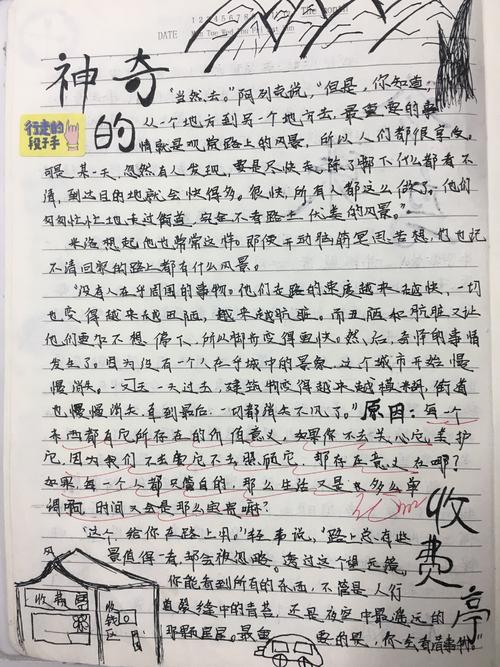 The month
1 2 3 4 5 6 7 8
DATE Mon Tue Wed Thu Fri Sat Sun
神奇的收费亭
行走的
段子手
"当然去。"阿列克说，"但是，你知道，
从一个地方到另一个地方去，最重要的事
情就是观赏路上的风景，所以人们都很享受。
可是某一天，忽然有人发现，要是尽快走，除了脚下什么都看不
清，到达目的地就会快得多。很快，所有人都这么做了。他们
匆匆忙忙地走过街道，完全不看路上优美的风景。"
米洛想起他也常常这样。即使开动脑筋冥思苦想，也也记
不清回家的路上都有什么风景。
"没有人在乎周围的事物。他们走路的速度越来越快，一切
也变得越来越丑陋，越来越肮脏。而丑陋和肮脏又让
他们更加不想停下，所以脚步变得更快。然后，奇怪的事情
发生了。因为没有一个人在乎城中的景象，这个城市开始慢
慢消失。一天天过去，建筑物变得越来越模糊，街道
也慢慢消失，直到最后，一切都消失不见了。"原因：每一个
东西都有它所存在的价值意义，如果你不去关心它，爱护
它，因为我们不去爱它不去照顾它，那存在意义在哪？
如果每一个人都只管自己，那么生活又是也多么单
调啊，时间又会是那么宝贵嘛？
"这个，给你在路上用。"轻声说，"路上总有些
最值得一看，却会被忽略。透过这个望远镜，
你能看到所有的东西，不管是人行
道裂缝中的青苔，还是夜空中最遥远的
那颗星星。最重要的是，你会看清事物
收费
收费区